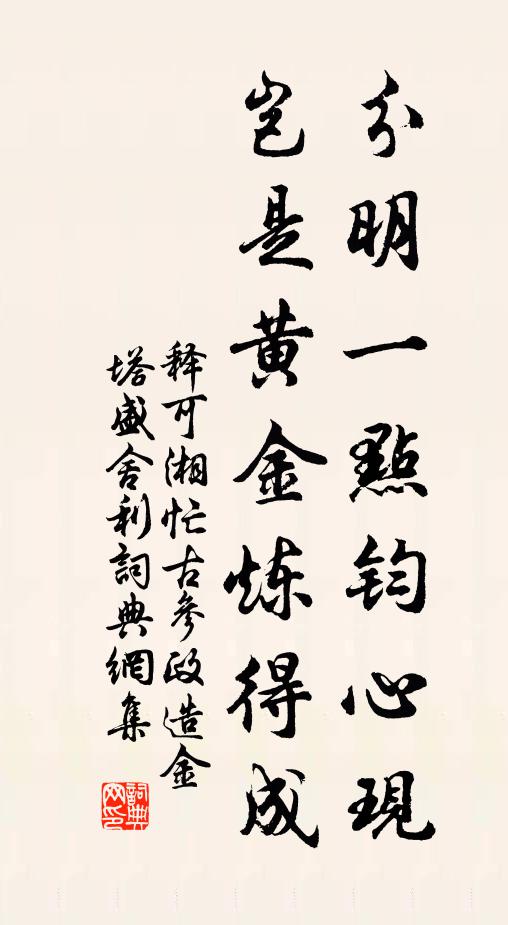 分明一點钧心現
岂是黄金炼得成
释可湘忙古參政造金
塔盛舍利詞典網集
詞典网印